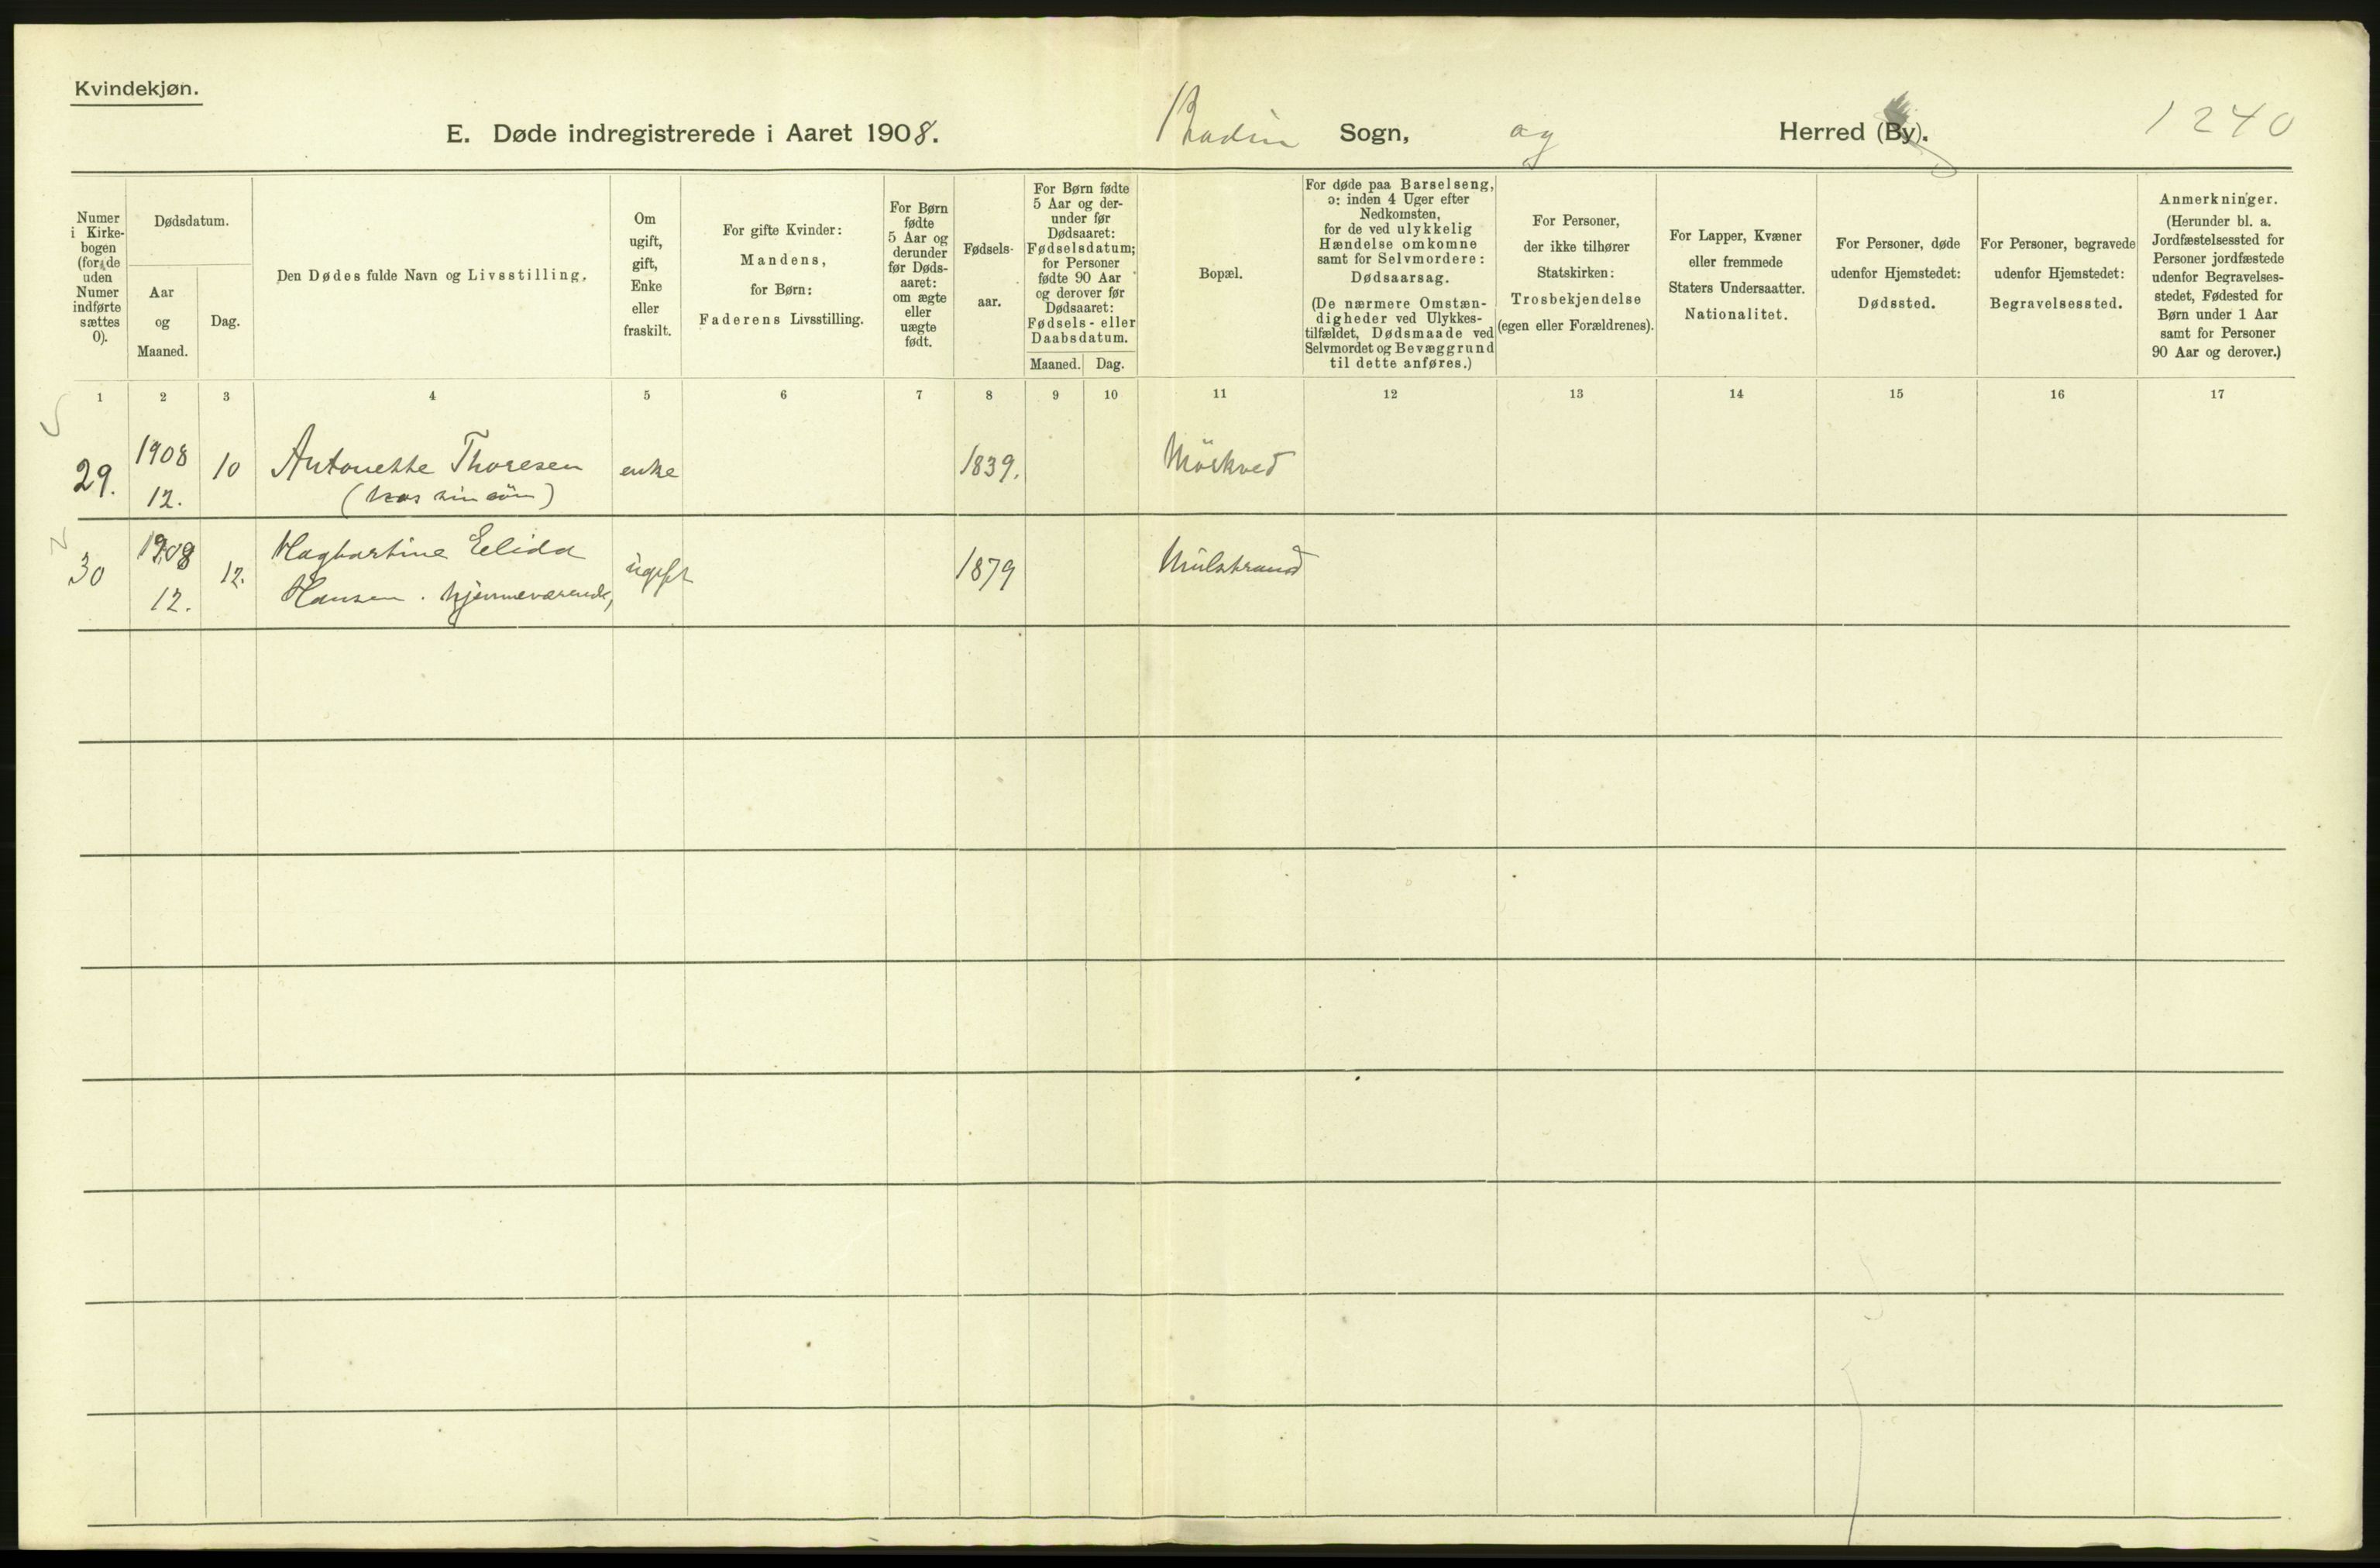 Kvindekjøn.
E. Døde indregistrerede i Aaret 1908. Bodin Sogn, og Herred (By). 1240
Numer i Kirkebogen (for de uden Numer indførte sættes 0).
Dødsdatum.
Aar og Maaned.
Dag.
Den Dødes fulde Navn og Livsstilling.
Om ugift, gift, Enke eller fraskilt.
For gifte Kvinder: Mandens, for Børn: Faderens Livsstilling.
For Børn fødte 5 Aar og derunder før Dødsaaret: om ægte eller uægte født.
Fødselsaar.
For Børn fødte 5 Aar og derunder før Dødsaaret: Fødselsdatum; for Personer fødte 90 Aar og derover før Dødsaaret: Fødsels- eller Daabsdatum.
Maaned. Dag.
Bopæl.
For døde paa Barselseng, ɔ: inden 4 Uger efter Nedkomsten, for de ved ulykkelig Hændelse omkomne samt for Selvmordere: Dødsaarsag.
(De nærmere Omstændigheder ved Ulykkestilfældet, Dødsmaade ved Selvmordet og Bevæggrund til dette anføres.)
For Personer, der ikke tilhører Statskirken: Trosbekjendelse (egen eller Forældrenes).
For Lapper, Kvæner eller fremmede Staters Undersaatter. Nationalitet.
For Personer, døde udenfor Hjemstedet: Dødssted.
For Personer, begravede udenfor Hjemstedet: Begravelsessted.
Anmerkninger.
(Herunder bl. a. Jordfæstelsessted for Personer jordfæstede udenfor Begravelsesstedet, Fødested for Børn under 1 Aar samt for Personer 90 Aar og derover.)
1 2 3 4 5 6 7 8 9 10 11 12 13 14 15 16 17
29. 1908 10 Antonette Thoresen enke 1839. Mörkved
12. (hos sin sön)
30 1908 12. Hagbartine Elida ugift 1879 Mulstrand
12. Hansen. hjemmeværende,